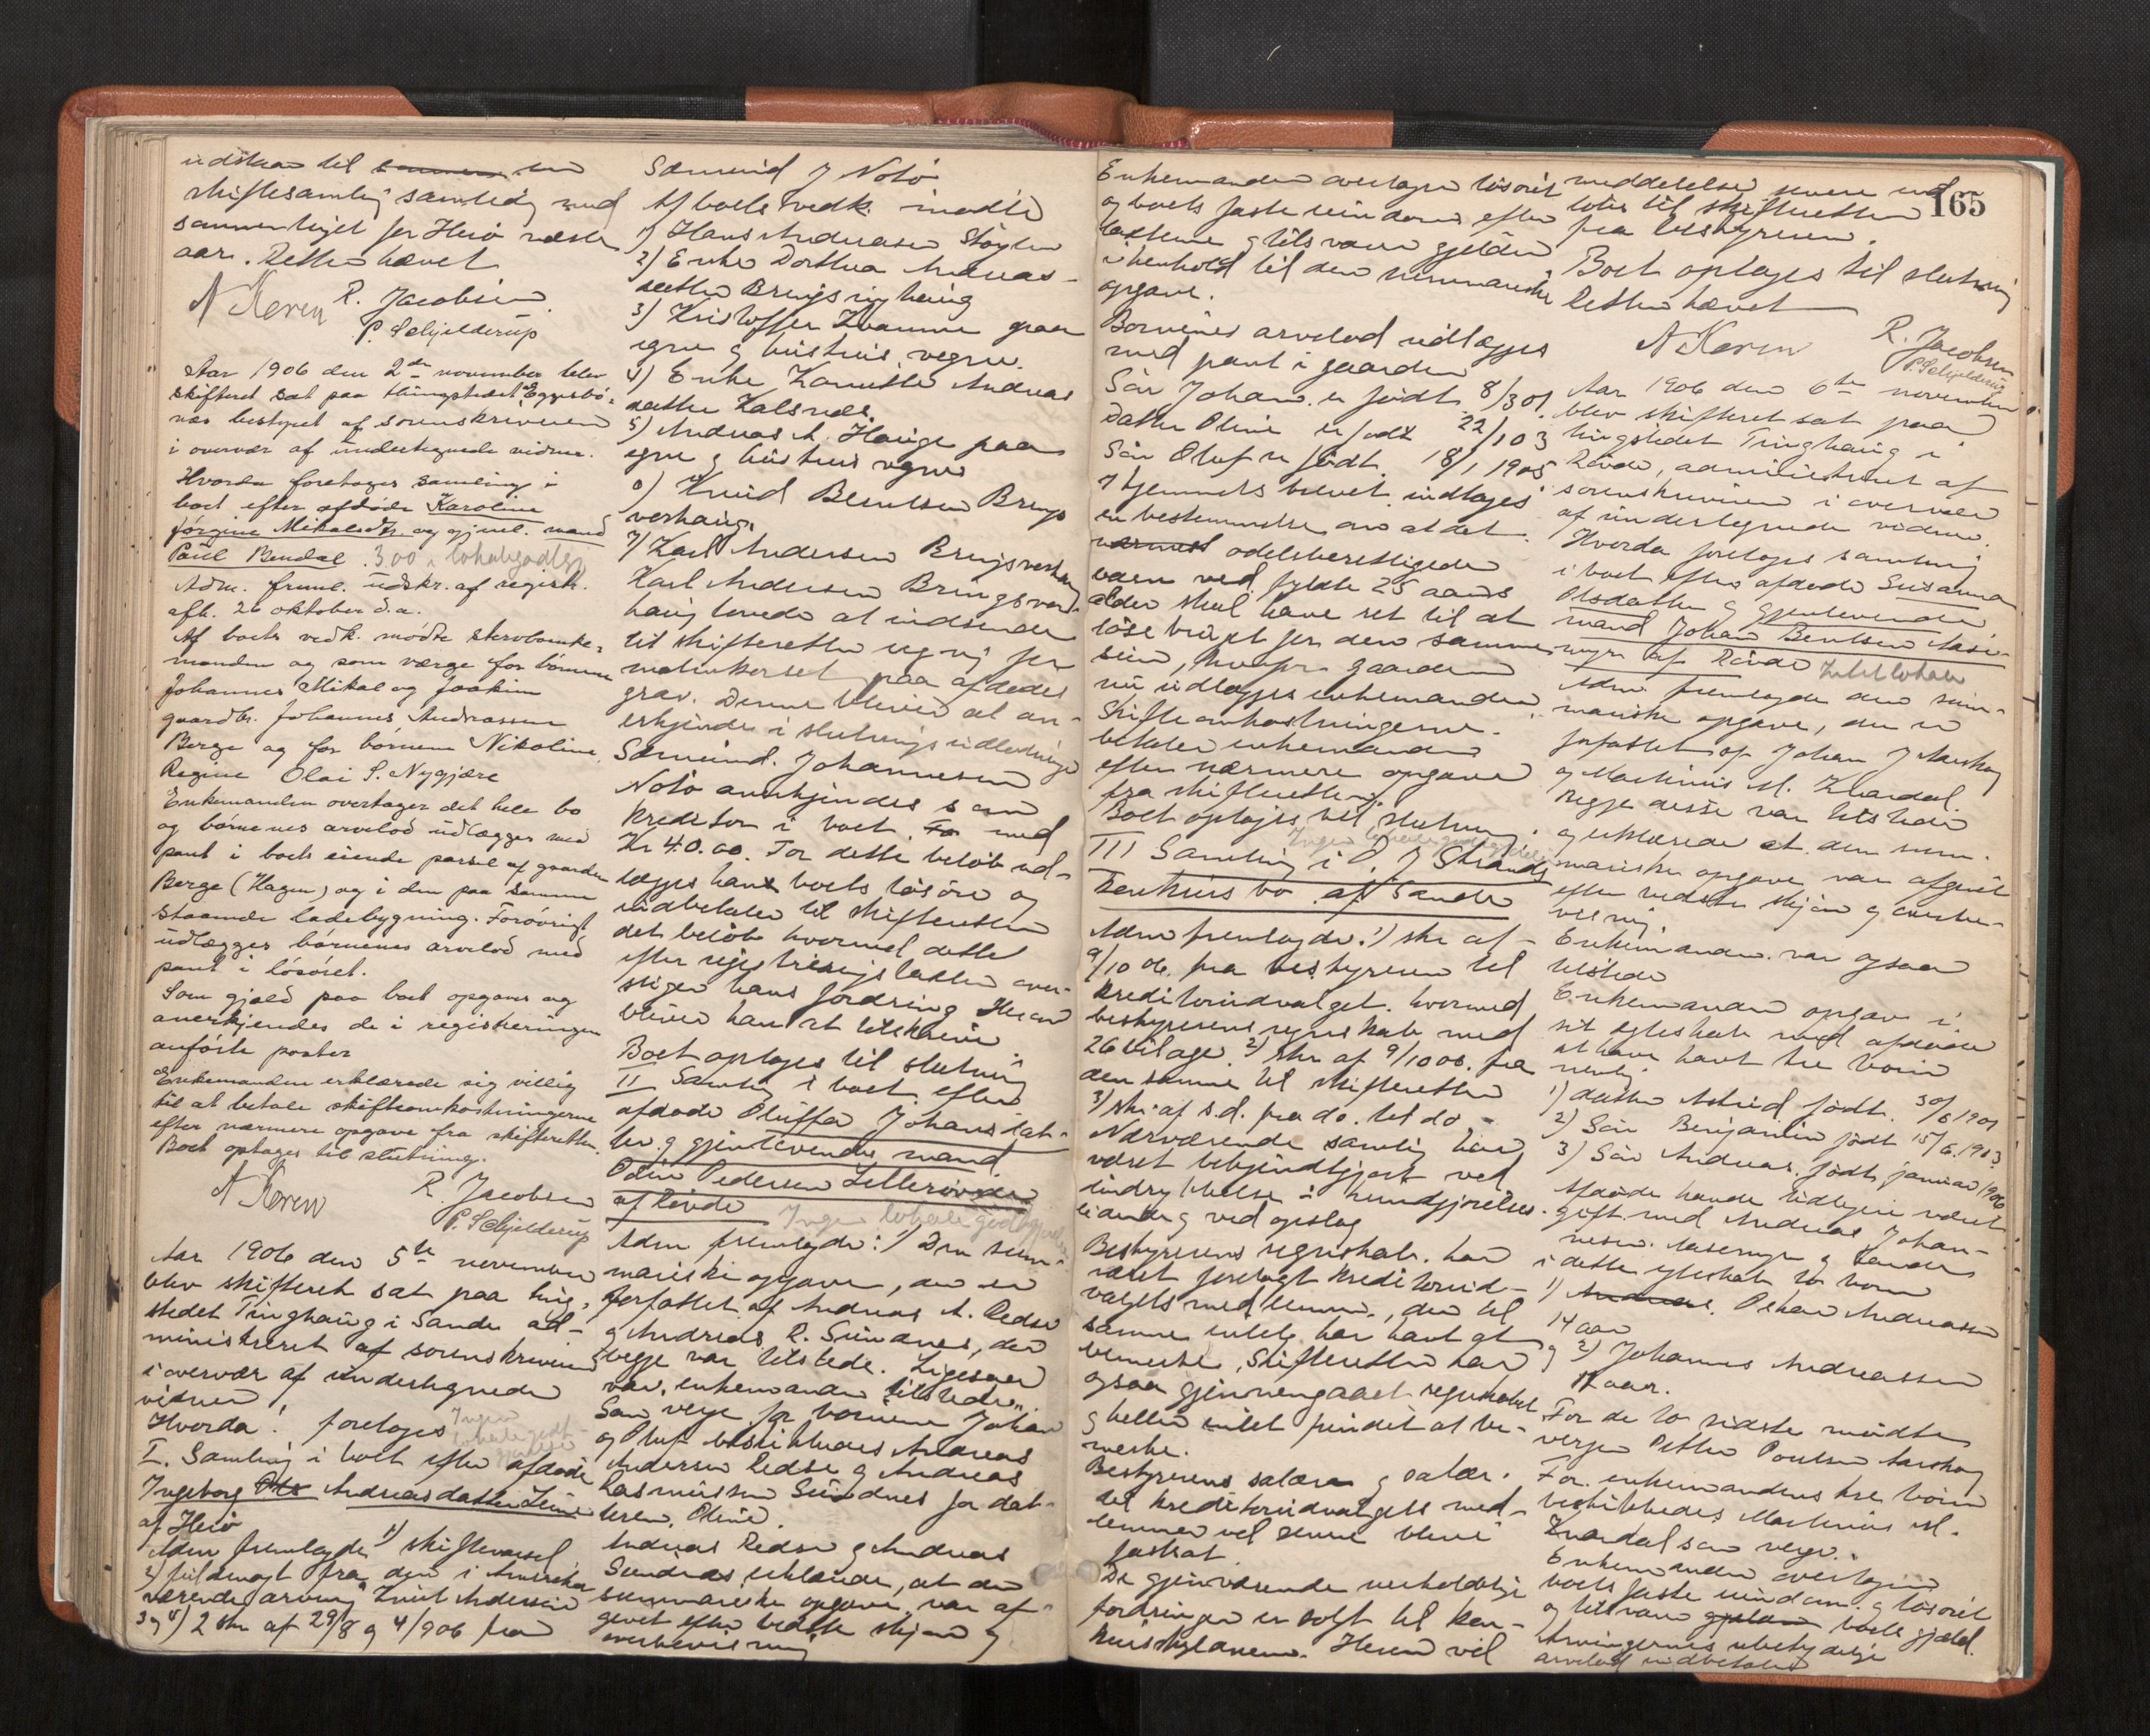 udstaar til en
skiftesamling samtidig med
sammen tinget for Herö næste
aar. Retten hævet
A Koren R. Jacobsen
P. Schjelderup
Aar 1906 den 2den november blev
skifteret sat paa thingstedet Eggesbö-
næs bestyret af sorenskriveren
i overvær af undertegnede vidner.
Hvorda foretages samling i
boet efter afdöde Karoline
Jörgine Mikalsdtr. og gjenl. mand
Paul Bendal. 3.00 i lokalegodtgj
Adm. freml. udskr. af registr.
afh. 26 oktober d.a.
Af boets vedk. mødte sterbo enke-
manden og som værge for börnene
Johannes Mikal og Joakim
gaardbr. Johannes Andreassen
Berge og for börnene Nikoline
Regine Olai S. Nygjære
Enkemanden overtager det hele bo
og börnenes arvelod udlægges med
pant i boets eiende parsel af gaarden
Berge (Hagen) og i den paa samme
staaende ladebygning. Forövrigt
udlægges börnenes arvelod med
pant i lösöret.
Som gjæld paa boet opgaves og
anerkjendes de i registreringen
anförte poster
Enkemanden erklærede sig villig
til at betale skifteomkostningerne
efter nærmere opgave fra skifteretten.
Boet optages til slutning.
A Koren R. Jacobsen
P. Schjelderup
Aar 1906 den 5te november
blev skifteret sat paa ting-
stedet Tinghaug i Sande ad-
ministreret af sorenskriveren
i overvær af undertegnede
vidner!
Hvorda! foretoges Ingen
lokalegodt-
gjørelse
I. Samling i boet efter afdöde
Ingeborg Ols Andreasdatter
af Herö
Adm fremlagde 1) skiftevarsel
2) fuldmagt fra den i Amerika
værende arving Knut Andersen
3 og 4) 2 skr af 29/8 og 4/906 fra
Sæmund J Notö
Af boets vedk. mødte
1) Hans Andreasen Stöylen
2) Enke Dorthea Andreas-
datter Bringsinghaug
3) Kristoffer Kvamme paa
egne og hustrus vegne.
4) Enke Kamilla Andreas
datter Kalsnæs.
5) Andreas A. Hauge paa
egne og hustrus vegne
6) Knud Berntsen Brings
verhaug.
7) Karl Andersen Bringsverhaug
Karl Andersen Bringsver-
haug lovede at indsende
til skifteretten regng for
paa afdödes
grav. Denne bliver at an-
erkjende i slutningsudlodninge
Sæmund. Johannesen
Notö anerkjendes som
kreditor i boet. For med
Kr 40.00. For dette belöb ud-
lægges ham boets lösöre og
indbetaler til skifteretten
det belöb hvormed dette
efter registreringstaxten over-
stiger hans fordring Herom
bliver han at tilskrive
Boet optages til slutning
II Samling i boet efter
afdöde Oluffa Johansdat-
ter og gjenlevende mand
Odin Pedersen Lillerövde
af Rövde Ingen lokalegodtgjørelse
Adm fremlagde: 1) Den sum-
mariske opgave, den er
forfattet af Andreas A. Redse
og Andreas R. Sundnes, der
begge var tilstede. Ligesaa
var enkemanden tilstede.
Som verge for börnene Johan
og Oluf beskikkedes Andreas
Andersen Redse og Andreas
Rasmussen Sundnes for dat-
teren. Oline.
Andreas Redse og Andreas
Sundnes erklærede, at den
summariske opgave var af-
givet efter bedste skjön og
overbevisning
165
Enkemanden overtager lösöret
og boets faste eiendom efter
taxterne og tilsvarer gjælden
i henhold til den summariske
opgave.
Börnenes arvelod udlægges
med pant i gaarden
Sön Johan. er födt 8/3 01.
Datter Oline er födt 22/10 3
Sön Oluf er födt. 18/1 1905
I hjemmelsbrevet indtages
en bestemmelse om at det
nærmest odelsberettigede
barn ved fyldte 25 aars
alder skal have ret til at
löse bruget for den samme
sum, hvorfor gaarden
nu udlægges enkemanden.
Skifteomkostningerne
betaler enkemanden
efter nærmere opgave
fra skifteretten.
Boet optages til slutning.
Ingen lokalegodtgjørelse
III Samling i P. J Strands
konkurs bo af Sande
Adm fremlagde: 1) skr af
9/10 06. fra bestyreren til
kreditorudvalget. hvormed
bestyrerens regnskab med
26 bilage. 2) skr af 9/10 06. fra
den samme til skifteretten
3) skr. af s.d. fra do. til do.
Nærværende samling har
været bekjendtgjort ved
indrykkelse i kundgjörelses-
tidende og ved opslag
Bestyrerens regnskab. har
været forelagt kreditorud-
valgets medlemmer, der til
samme intet har havt at
bemerke. Skifteretten har
ogsaa gjennemgaaet regnskabet
og heller intet fundet at be-
merke.
Bestyrerens salær og salær.
til kreditorudvalgets med-
lemmer vil senere blive
fastsat.
De gjenværende uerholdelige
fordringer er solgt til kon-
kursskyldneren. Herom vil
meddelelse senere ind
löbe til skifteretten
fra bestyreren.
Boet optages til slutning
Retten hævet
A Koren R. Jacobsen
P. Schjelderup
Aar 1906 den 6te november
blev skifteret sat paa
tingstedet Tinghaug i
Rövde, administreret af
sorenskriveren i overvær
af undertegnede vidner.
Hvorda foretoges samling
i boet efter afdöde Susanna
Olsdatter og gjenlevende
mand Johan Berntsen Aase-
myr af Rövde Intet lokale
Adm fremlagde den sum-
mariske opgave, den er
forfattet af Johan J Aarskog
og Martinus M. Kvardal.
Begge disse var tilstede
og erklærede at den sum-
mariske opgave var afgivet
efter bedste skjön og overbe-
visning
Enkemanden. var ogsaa
tilstede
Enkemanden opgav i
sit egteskab med afdöde
at have havt tre börn
nemlig:
1) datter Astrid födt. 30/8 1901
2) Sön Benjamin födt 15/6. 1903
3) Sön Andreas. födt januar 1906
Afdöde havde tidligere været
gift med Andreas Johan-
nesen. Aasemyr og havde
i dette egteskab to börn
1) Andreas. Oskar Andreassen
14 aar
og 2) Johannes Andreassen
17 aar.
For de to sidste mödte
vergen Petter Poulsen Aarskog
For. enkemandens tre börn
beskikkedes Martinus M.
Kvardal som verge.
Enkemanden overtager
boets faste eiendom. og lösöret
og tilsvarer gjælden boets gjæld.
Arvingernes ubetydelige
arvelod indbetales